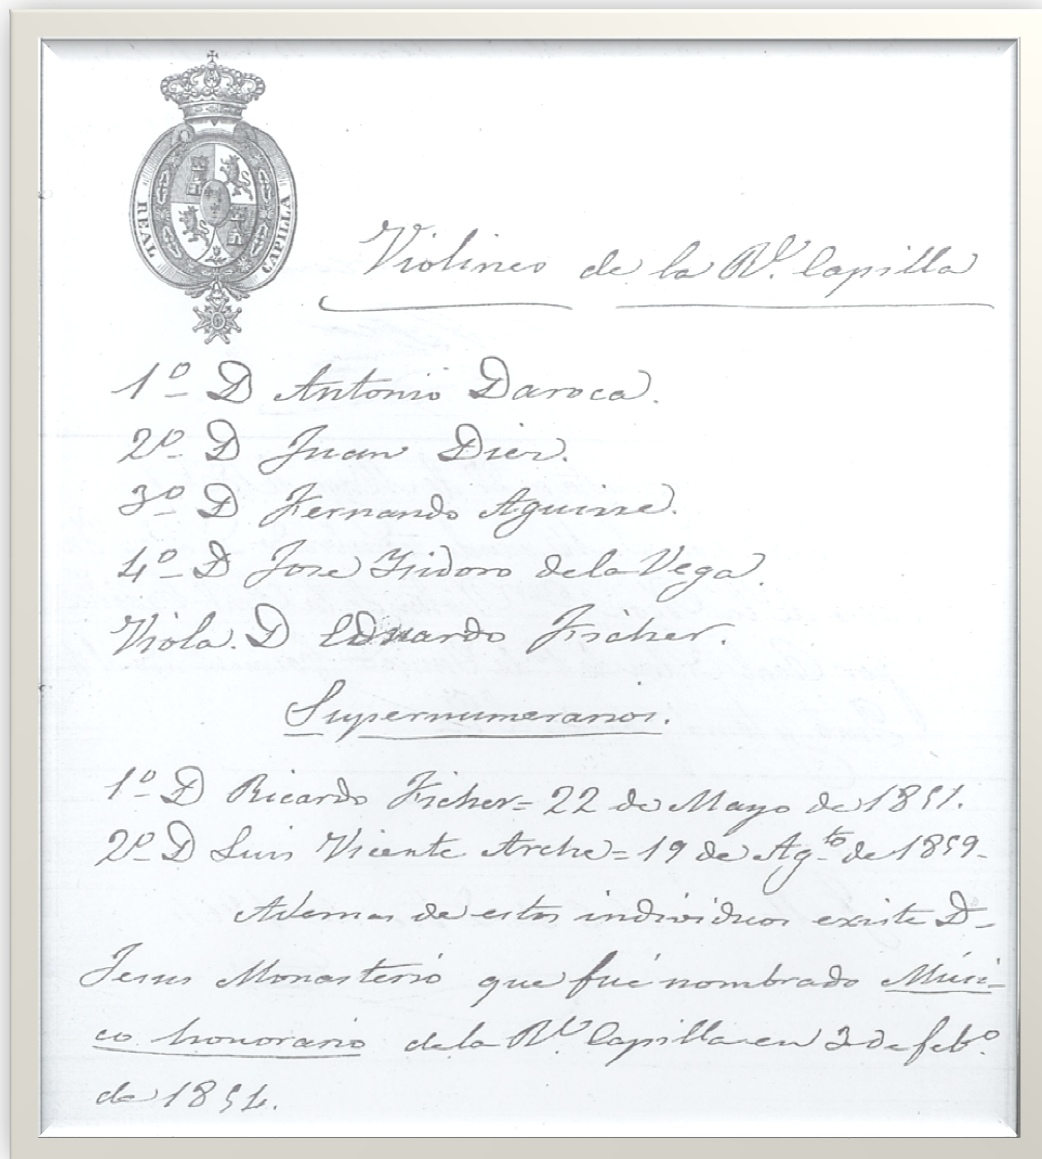 REAL CAPILLA
Violines de la Rl. Capilla
1º D Antonio Daroca.
2º D Juan Diez.
3º D Fernando Aguirre.
4º D Jose Ysidoro de la Vega.
Viola. D Eduardo Ficher.
Supernumerarios.
1º D Ricardo Ficher = 22 de Mayo de 1851.
2º D Luis Vicente Arche = 19 de Agto de 1859.
Ademas de estos individuos existe D.
Jesus Monasterio que fué nombrado Músi-
co honorario de la Rl. Capilla en 3 de febº
de 1854.